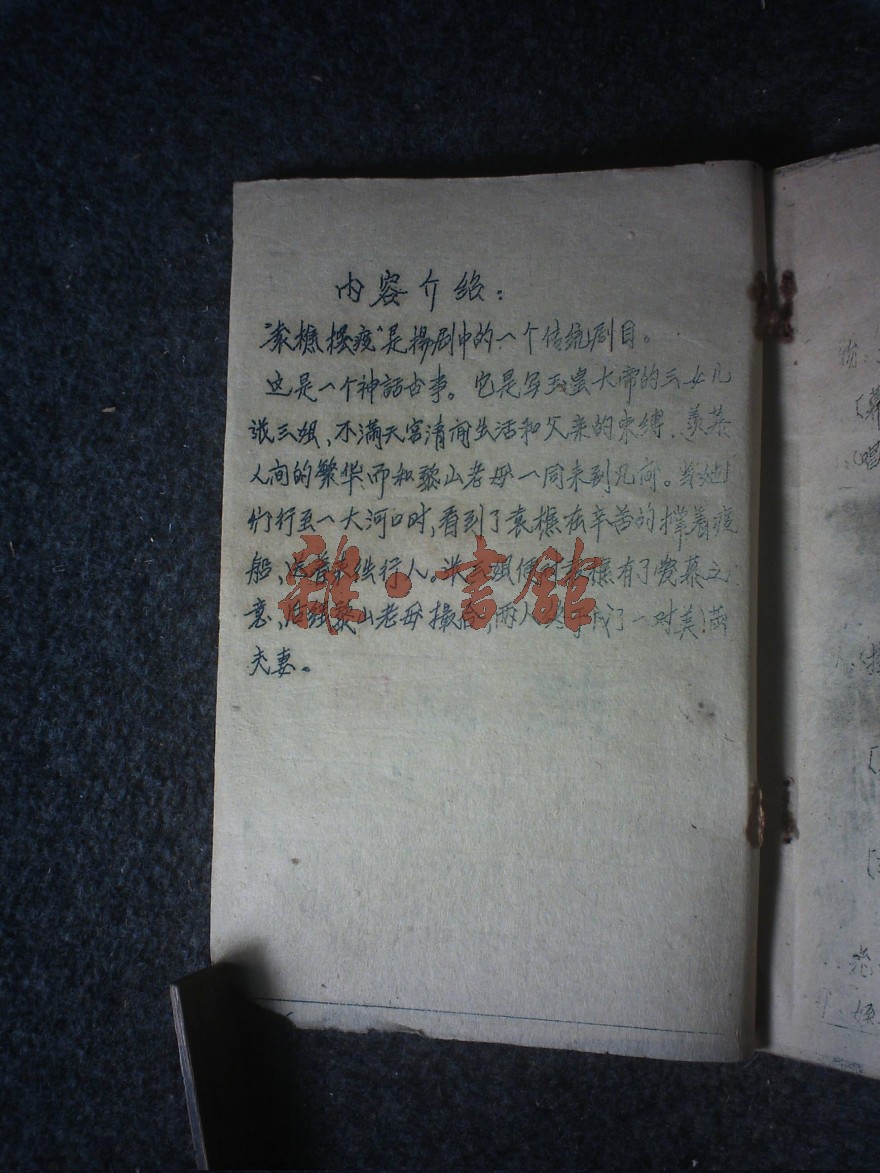 内容介绍:
"袁樵摆渡"是揚剧中的一个传统剧目。
这是一个神話古事。它是写玉皇大帝的三女儿
张三姐、不满天宫清闲生活和父亲的束缚、羡慕
人间的繁华而和黎山老母一同来到凡间。当她
们行至一大河口时,看到了袁樵在辛苦的撑着渡
船、送着来往行人。张三姐便对袁樵有了爱慕之
意、后经黎山老母撮合,两人成了一对美满
夫妻。
雜·書館